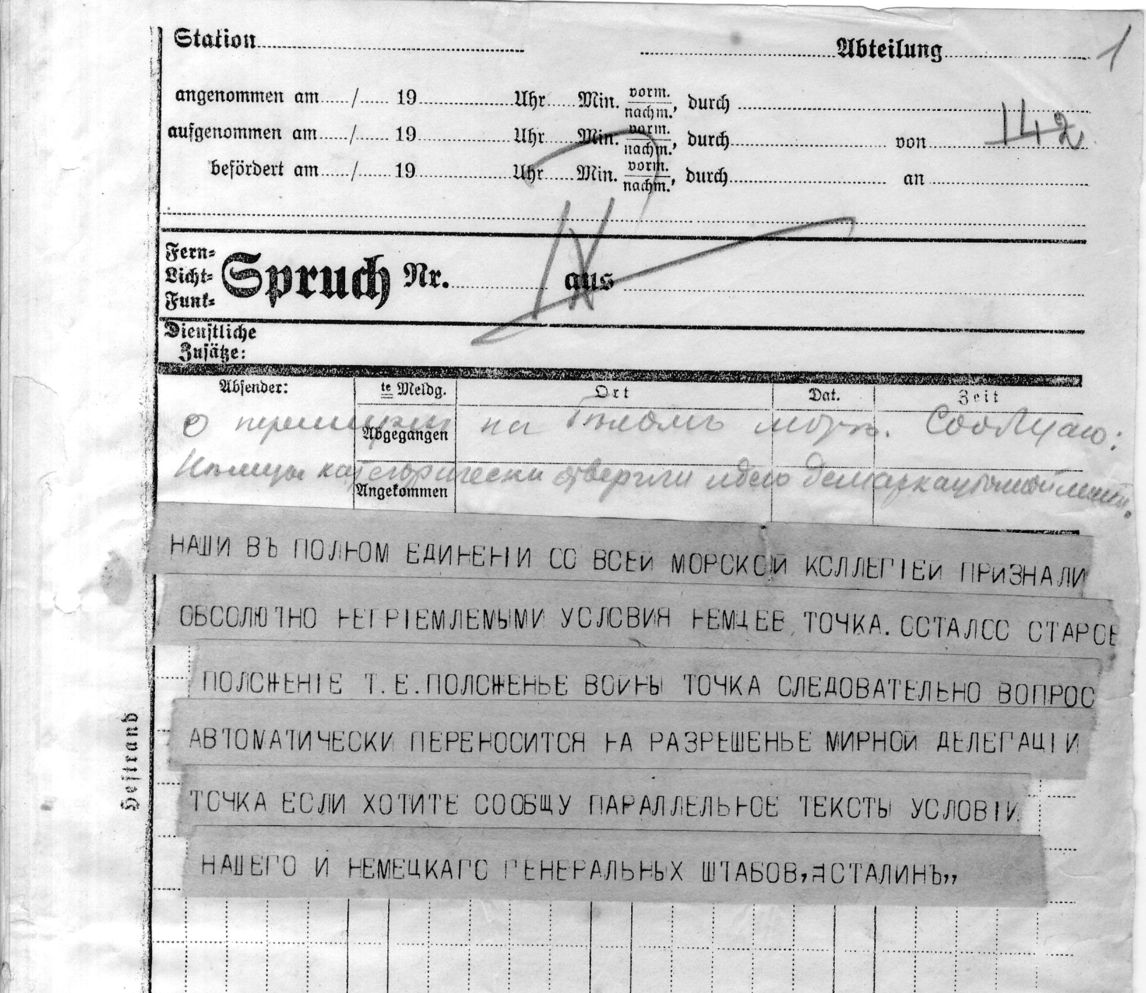 Station Abteilung 1
angenommen am / 19 Uhr Min. vorm. nachm., durch
aufgenommen am / 19 Uhr Min. vorm. nachm., durch von 142
befördert am / 19 Uhr Min. vorm. nachm., durch an
Fern-
Licht-
Funk-
Spruch Nr. aus
Dienstliche
Zusätze:
Absender: te Meldg. Ort Dat. Zeit
Abgegangen
о перемирии на Бѣломъ морѣ. Сообщаю:
Нѣмцы категорически отвергли идею демаркационной линіи.
Angekommen
НАШИ ВЪ ПОЛНОМ ЕДИНЕНIИ СО ВСЕЙ МОРСКОЙ КОЛЛЕГIЕЙ ПРИЗНАЛИ
АБСОЛЮТНО НЕПРIЕМЛЕМЫМИ УСЛОВИЯ НЕМЦЕВ, ТОЧКА. ОСТАЛОС СТАРОЕ
ПОЛОЖЕНIЕ Т.Е. ПОЛОЖЕНЬЕ ВОЙНЫ ТОЧКА СЛЕДОВАТЕЛЬНО ВОПРОС
АВТОМАТИЧЕСКИ ПЕРЕНОСИТСЯ НА РАЗРЕШЕНЬЕ МИРНОЙ ДЕЛЕГАЦIИ
ТОЧКА ЕСЛИ ХОТИТЕ СООБЩУ ПАРАЛЛЕЛЬНОЕ ТЕКСТЫ УСЛОВIИ
НАШЕГО И НЕМЕЦКАГО ГЕНЕРАЛЬНЫХ ШТАБОВ,,СТАЛИНЪ,,
Heftrand